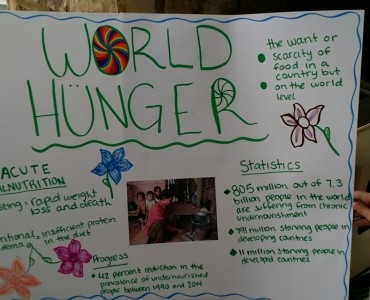 WORLD
HÜNGER
the want or
scarcity of
food in a
country but
on the world
level
ACUTE
MALNUTRITION
= rapid weight
loss and death
insufficient protein
in the diet
Progress
42 percent reduction in the
prevalence of undernourished
people between 1990 and 2014
Statistics
805 million out of 7.3
billion people in the world
are suffering from chronic
undernourishment
791 million starving people in
developing countries
11 million starving people in
developed countries